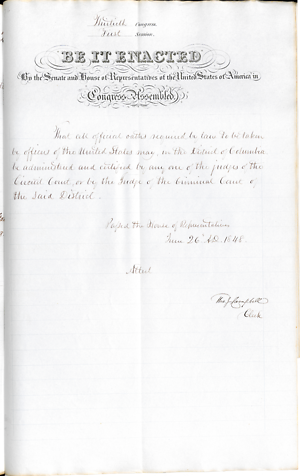 Thirtieth Congress
First Session
BE IT ENACTED
By the Senate and House of Representatives of the United States of America in
Congress Assembled
That all official oaths required by law to be taken
by officers of the United States may, in the District of Columbia
be administered and certified by any one of the judges of the
Circuit Court, or by the Judge of the Criminal Court of
the said District.
Passed the House of Representatives
June 26 AD. 1848.
Attest
Tho J. Campbell
Clerk